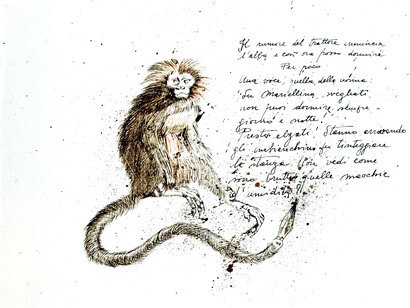 Il rumore del trattore comincia
l'alba e così ora posso dormire
Per poco
Una voce, quella della nonna:
"Su Mariellina, svegliati
non puoi dormire sempre
giorno e notte!
Presto alzati! Stanno arrivando
gli imbianchini per tinteggiare
la stanza. Non vedi come
sono brutte quelle macchie
d'umidità?"